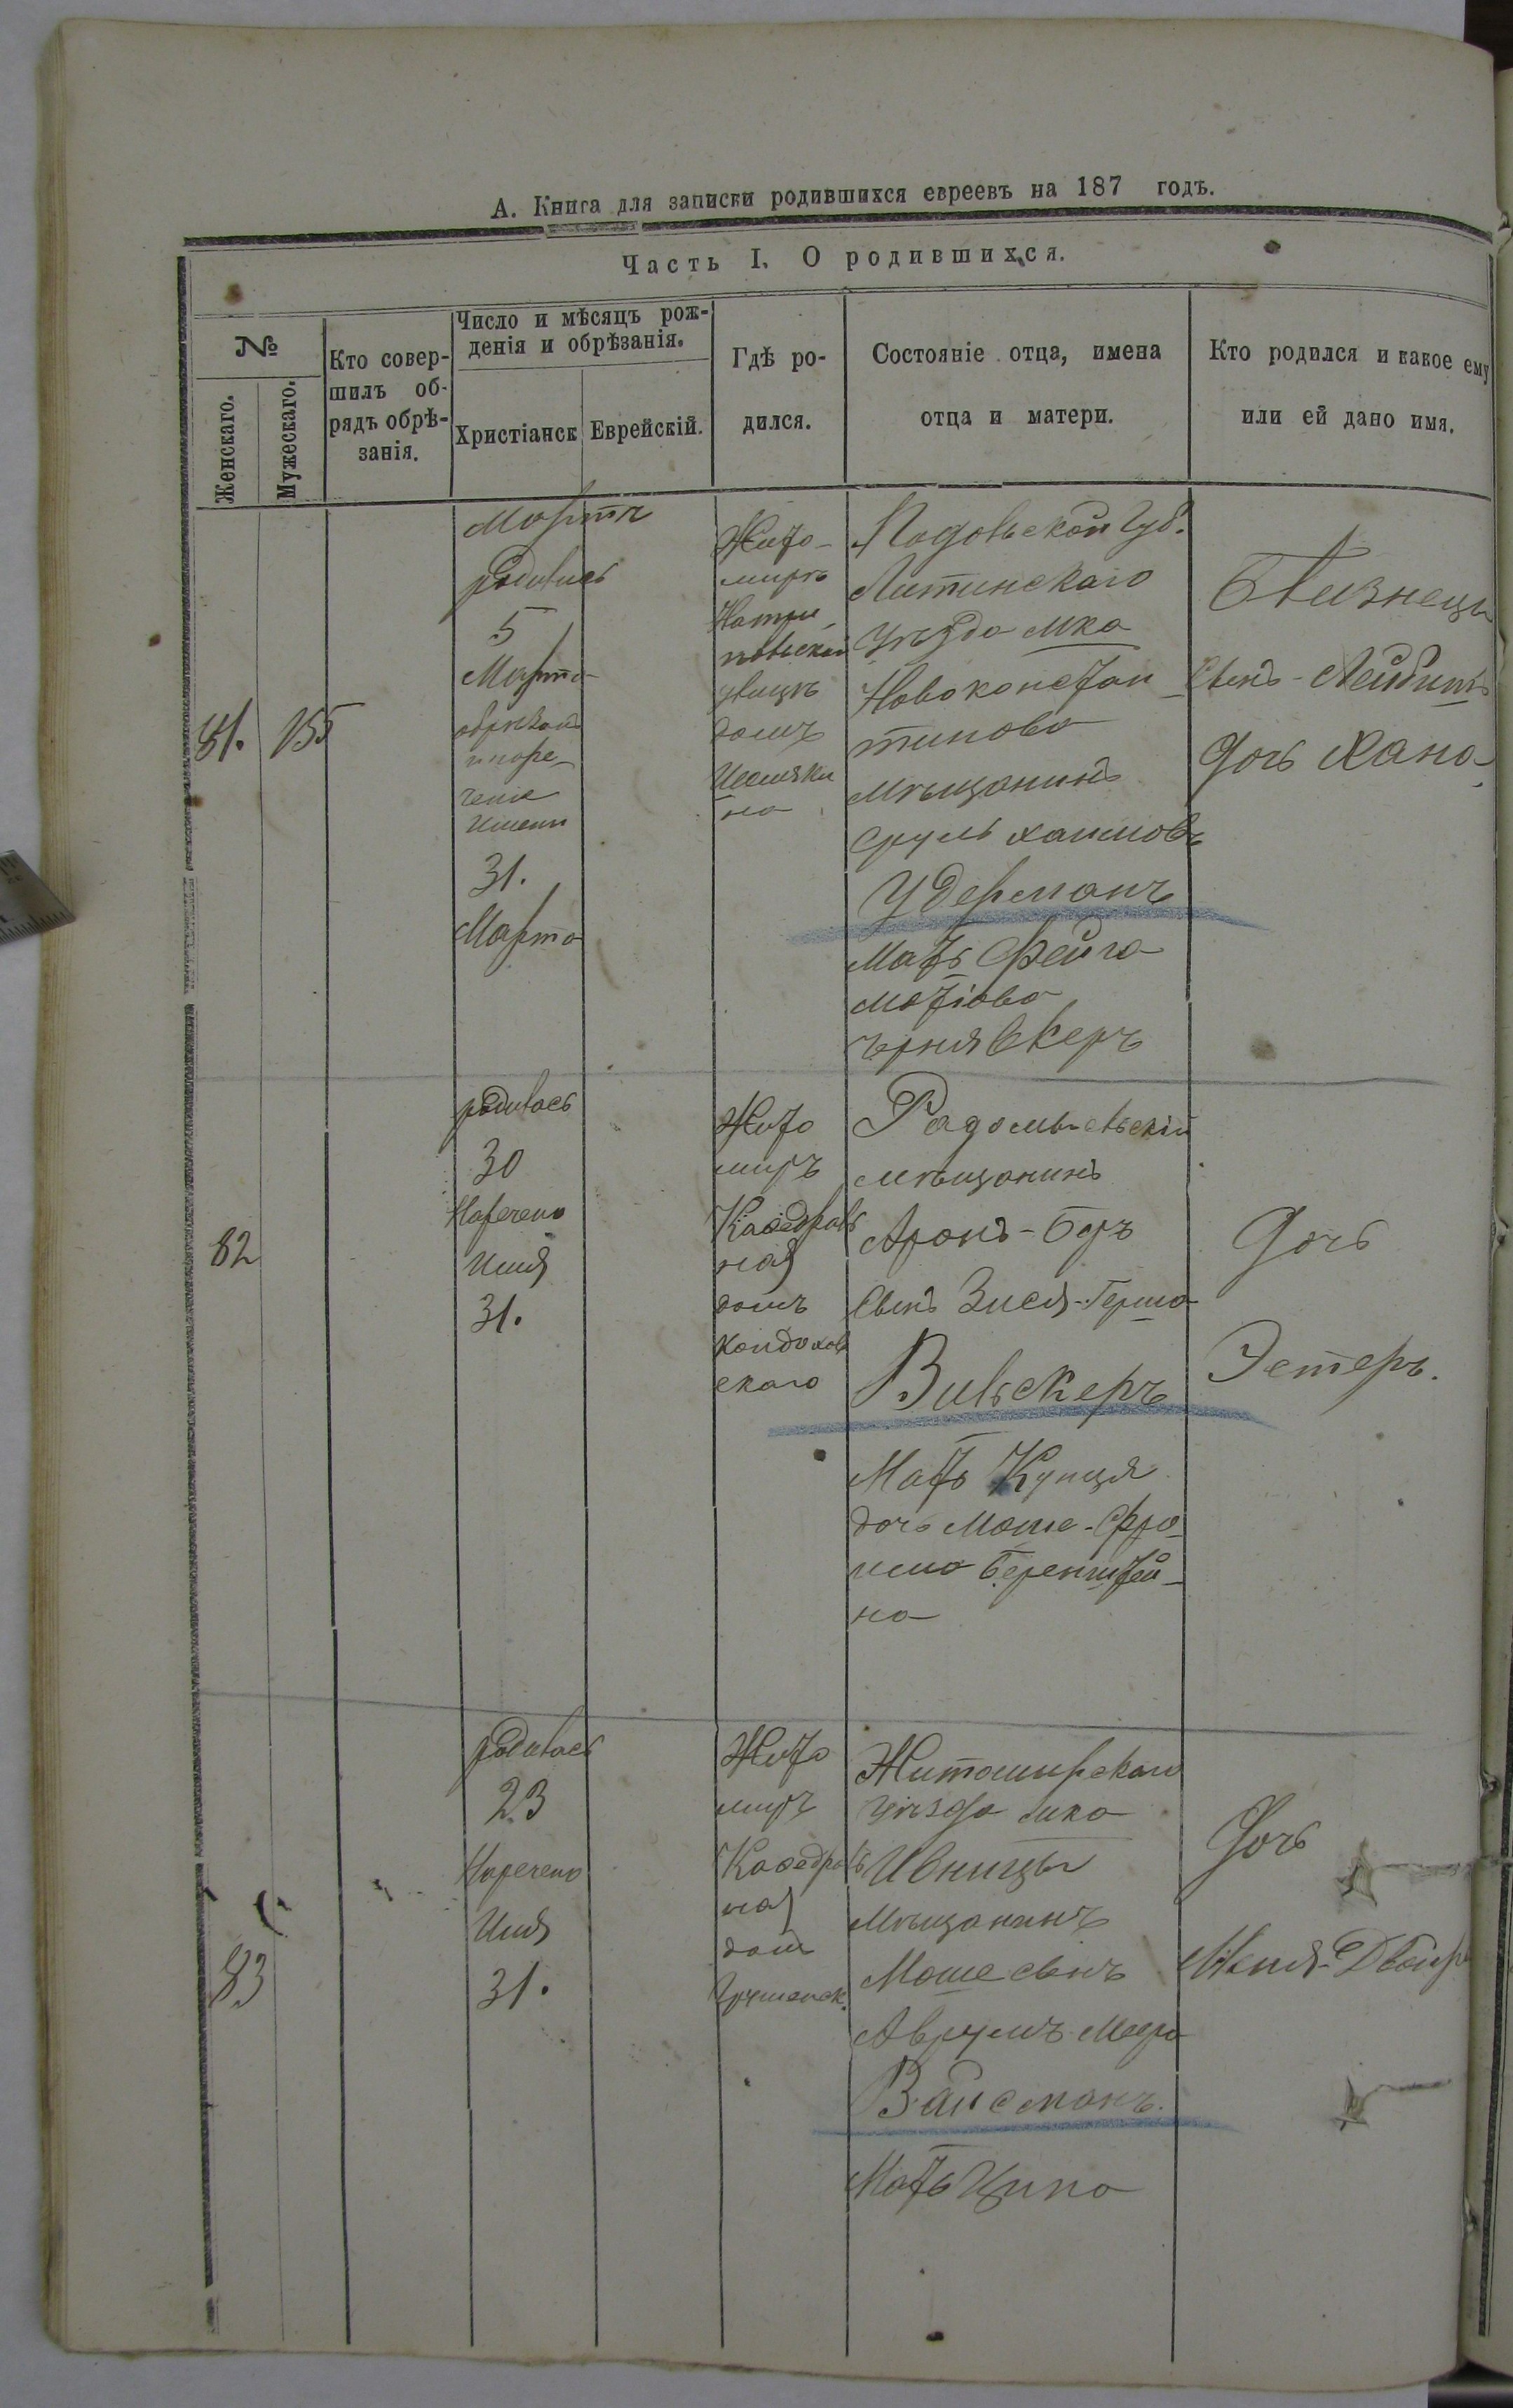 А. Книга для записки родившихся евреевъ на 187 годъ.
Часть I. О родившихся.
№
Женскаго.
Мужескаго.
Кто совер-
шилъ об-
рядъ обрѣ-
занія.
Число и мѣсяцъ рож-
денія и обрѣзанія.
Христіанск
Еврейскій.
Гдѣ ро-
дился.
Состояніе отца, имена
отца и матери.
Кто родился и какое ему
или ей дано имя.
81.
155
Мартъ
родились
5
Марта
обрѣзанъ
и наре-
ченіе
Имени
31.
Марта
Жито-
миръ
улицѣ
домъ
Подольской Губ.
Литинскаго
Уѣзда мка
Новоконстан-
тинова
мѣщанинъ
Сруль Хаимовъ
Удерманъ
Мать Фейга
Близнецы
Сынъ - Лейбишъ
Дочь Хана
82
родилась
30
Наречено
Имя
31.
Жито
миръ
Кафедраль
ная
домъ
скаго
Радомысльскій
мѣщанинъ
Аронъ-Беръ
Сынъ Зися-Герша
Вильскеръ
Мать Купця
дочь Моше-Фро
има Беренштей-
на
Дочь
Эстеръ.
83
родилась
23
Наречено
Имя
31.
Жито
миръ
Кафедраль
ная
домъ
Житомирскаго
уѣзда мка
Ивницы
Мѣщанинъ
Моше сынъ
Аврумъ Меера
Вайсманъ.
Мать Ципа
Дочь